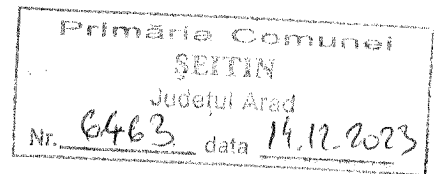 Primăria Comunei
ŞEITIN
Județul Arad
Nr. 6463 data 14.12.2023